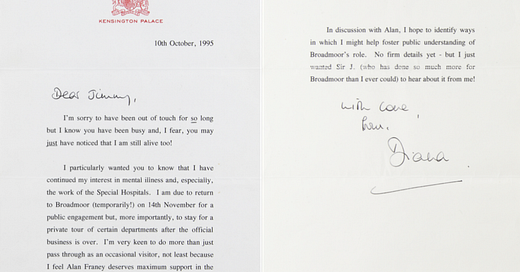 KENSINGTON PALACE
10th October, 1995
Dear Jimmy,
I'm sorry to have been out of touch for so long
but I know you have been busy and, I fear, you may
just have noticed that I am still alive too!
I particularly wanted you to know that I have
continued my interest in mental illness and, especially,
the work of the Special Hospitals. I am due to return
to Broadmoor (temporarily!) on 14th November for a
public engagement but, more importantly, to stay for a
private tour of certain departments after the official
business is over. I'm very keen to do more than just
pass through as an occasional visitor, not least because
I feel Alan Franey deserves maximum support in the
In discussion with Alan, I hope to identify ways
in which I might help foster public understanding of
Broadmoor's role. No firm details yet - but I just
wanted Sir J. (who has done so much more for
Broadmoor than I ever could) to hear about it from me!
with love,
from,
Diana